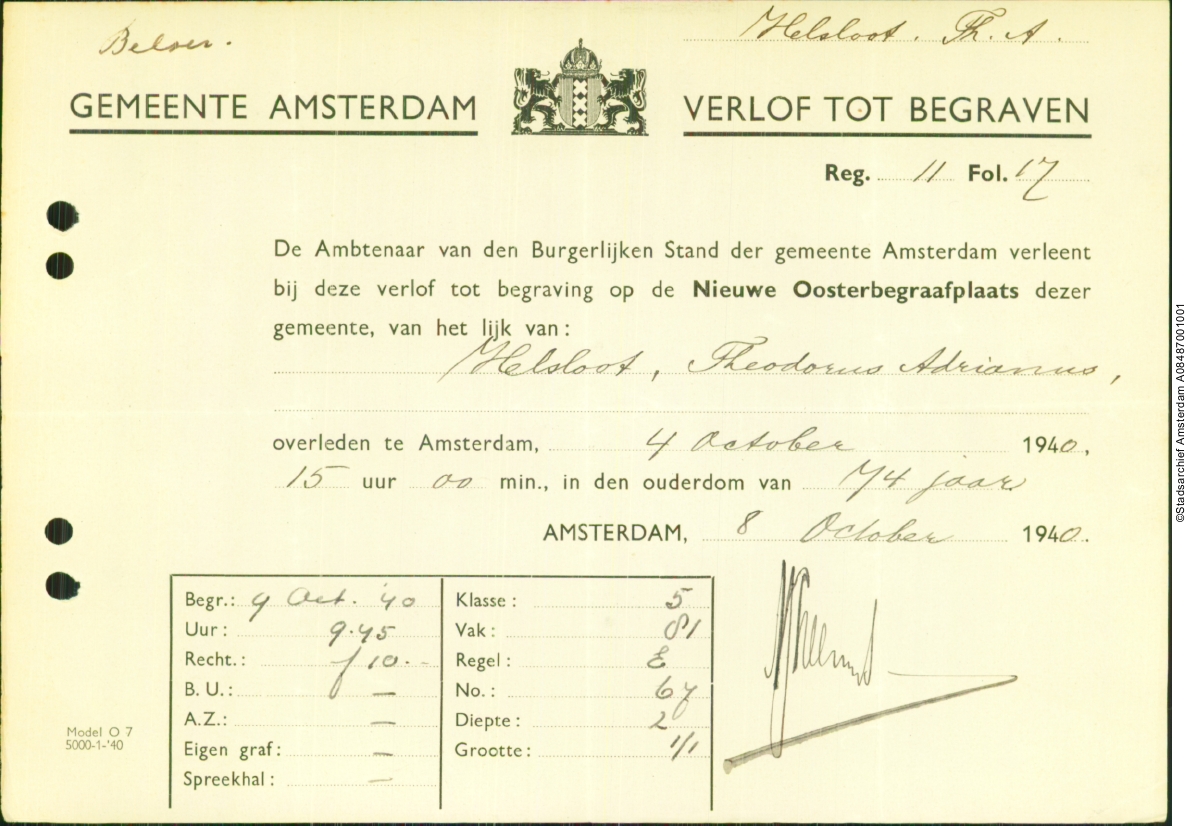 Helsloot. Th. A.
GEMEENTE AMSTERDAM
VERLOF TOT BEGRAVEN
Reg. 11 Fol. 17
De Ambtenaar van den Burgerlijken Stand der gemeente Amsterdam verleent
bij deze verlof tot begraving op de Nieuwe Oosterbegraafplaats dezer
gemeente, van het lijk van:
Helsloot, Theodorus Adrianus,
overleden te Amsterdam, 4 October 1940,
15 uur 00 min., in den ouderdom van 74 jaar
AMSTERDAM, 8 October 1940.
Begr.: 9 Oct. '40
Uur: 9.45
Recht.: f 10.-
B. U.: —
A.Z.: —
Eigen graf: —
Spreekhal: —
Klasse: 5
Vak: 81
Regel: E
No.: 67
Diepte: 2
Grootte: 1/1
Model O 7
5000-1-'40
©Stadsarchief Amsterdam A08487001001